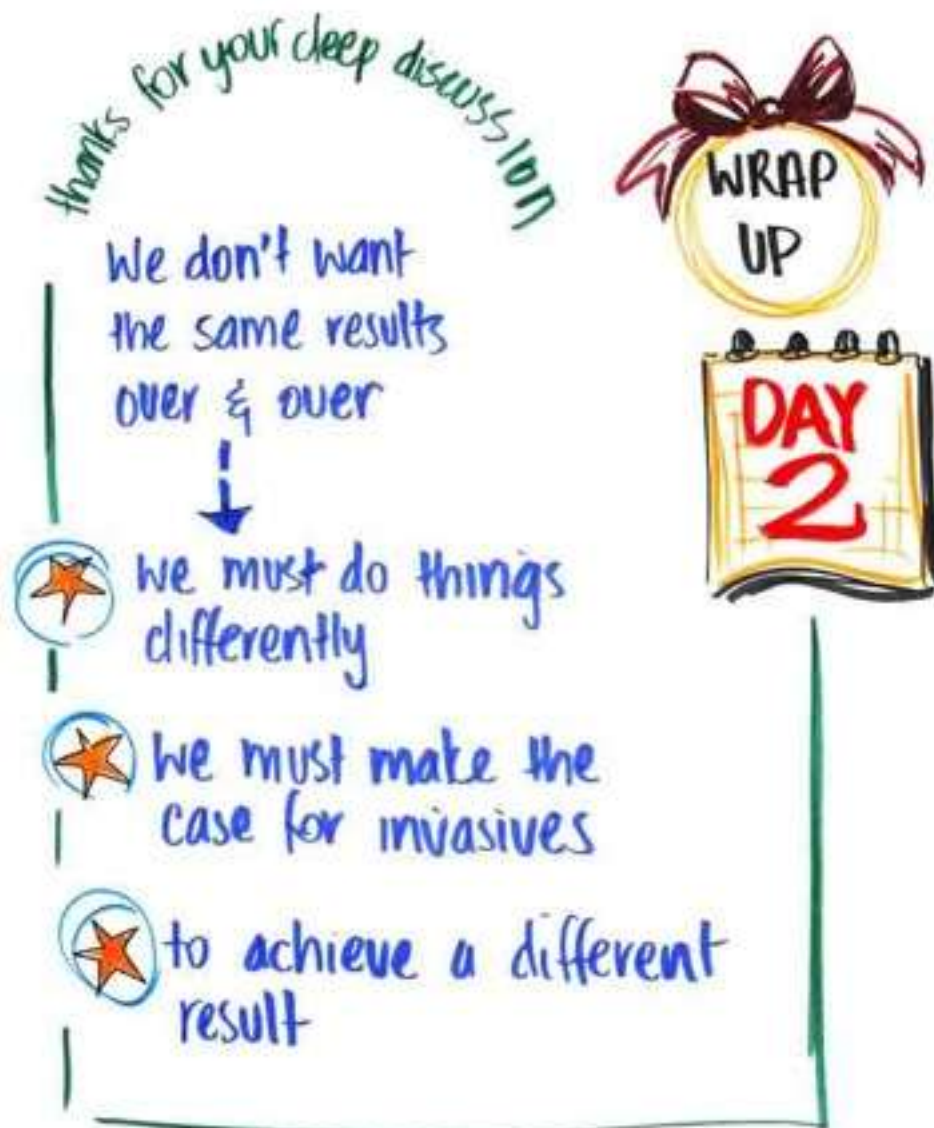 thanks for your deep discussion
WRAP
UP
DAY
2
We don't want
the same results
over & over
we must do things
differently
we must make the
case for invasives
to achieve a different
result